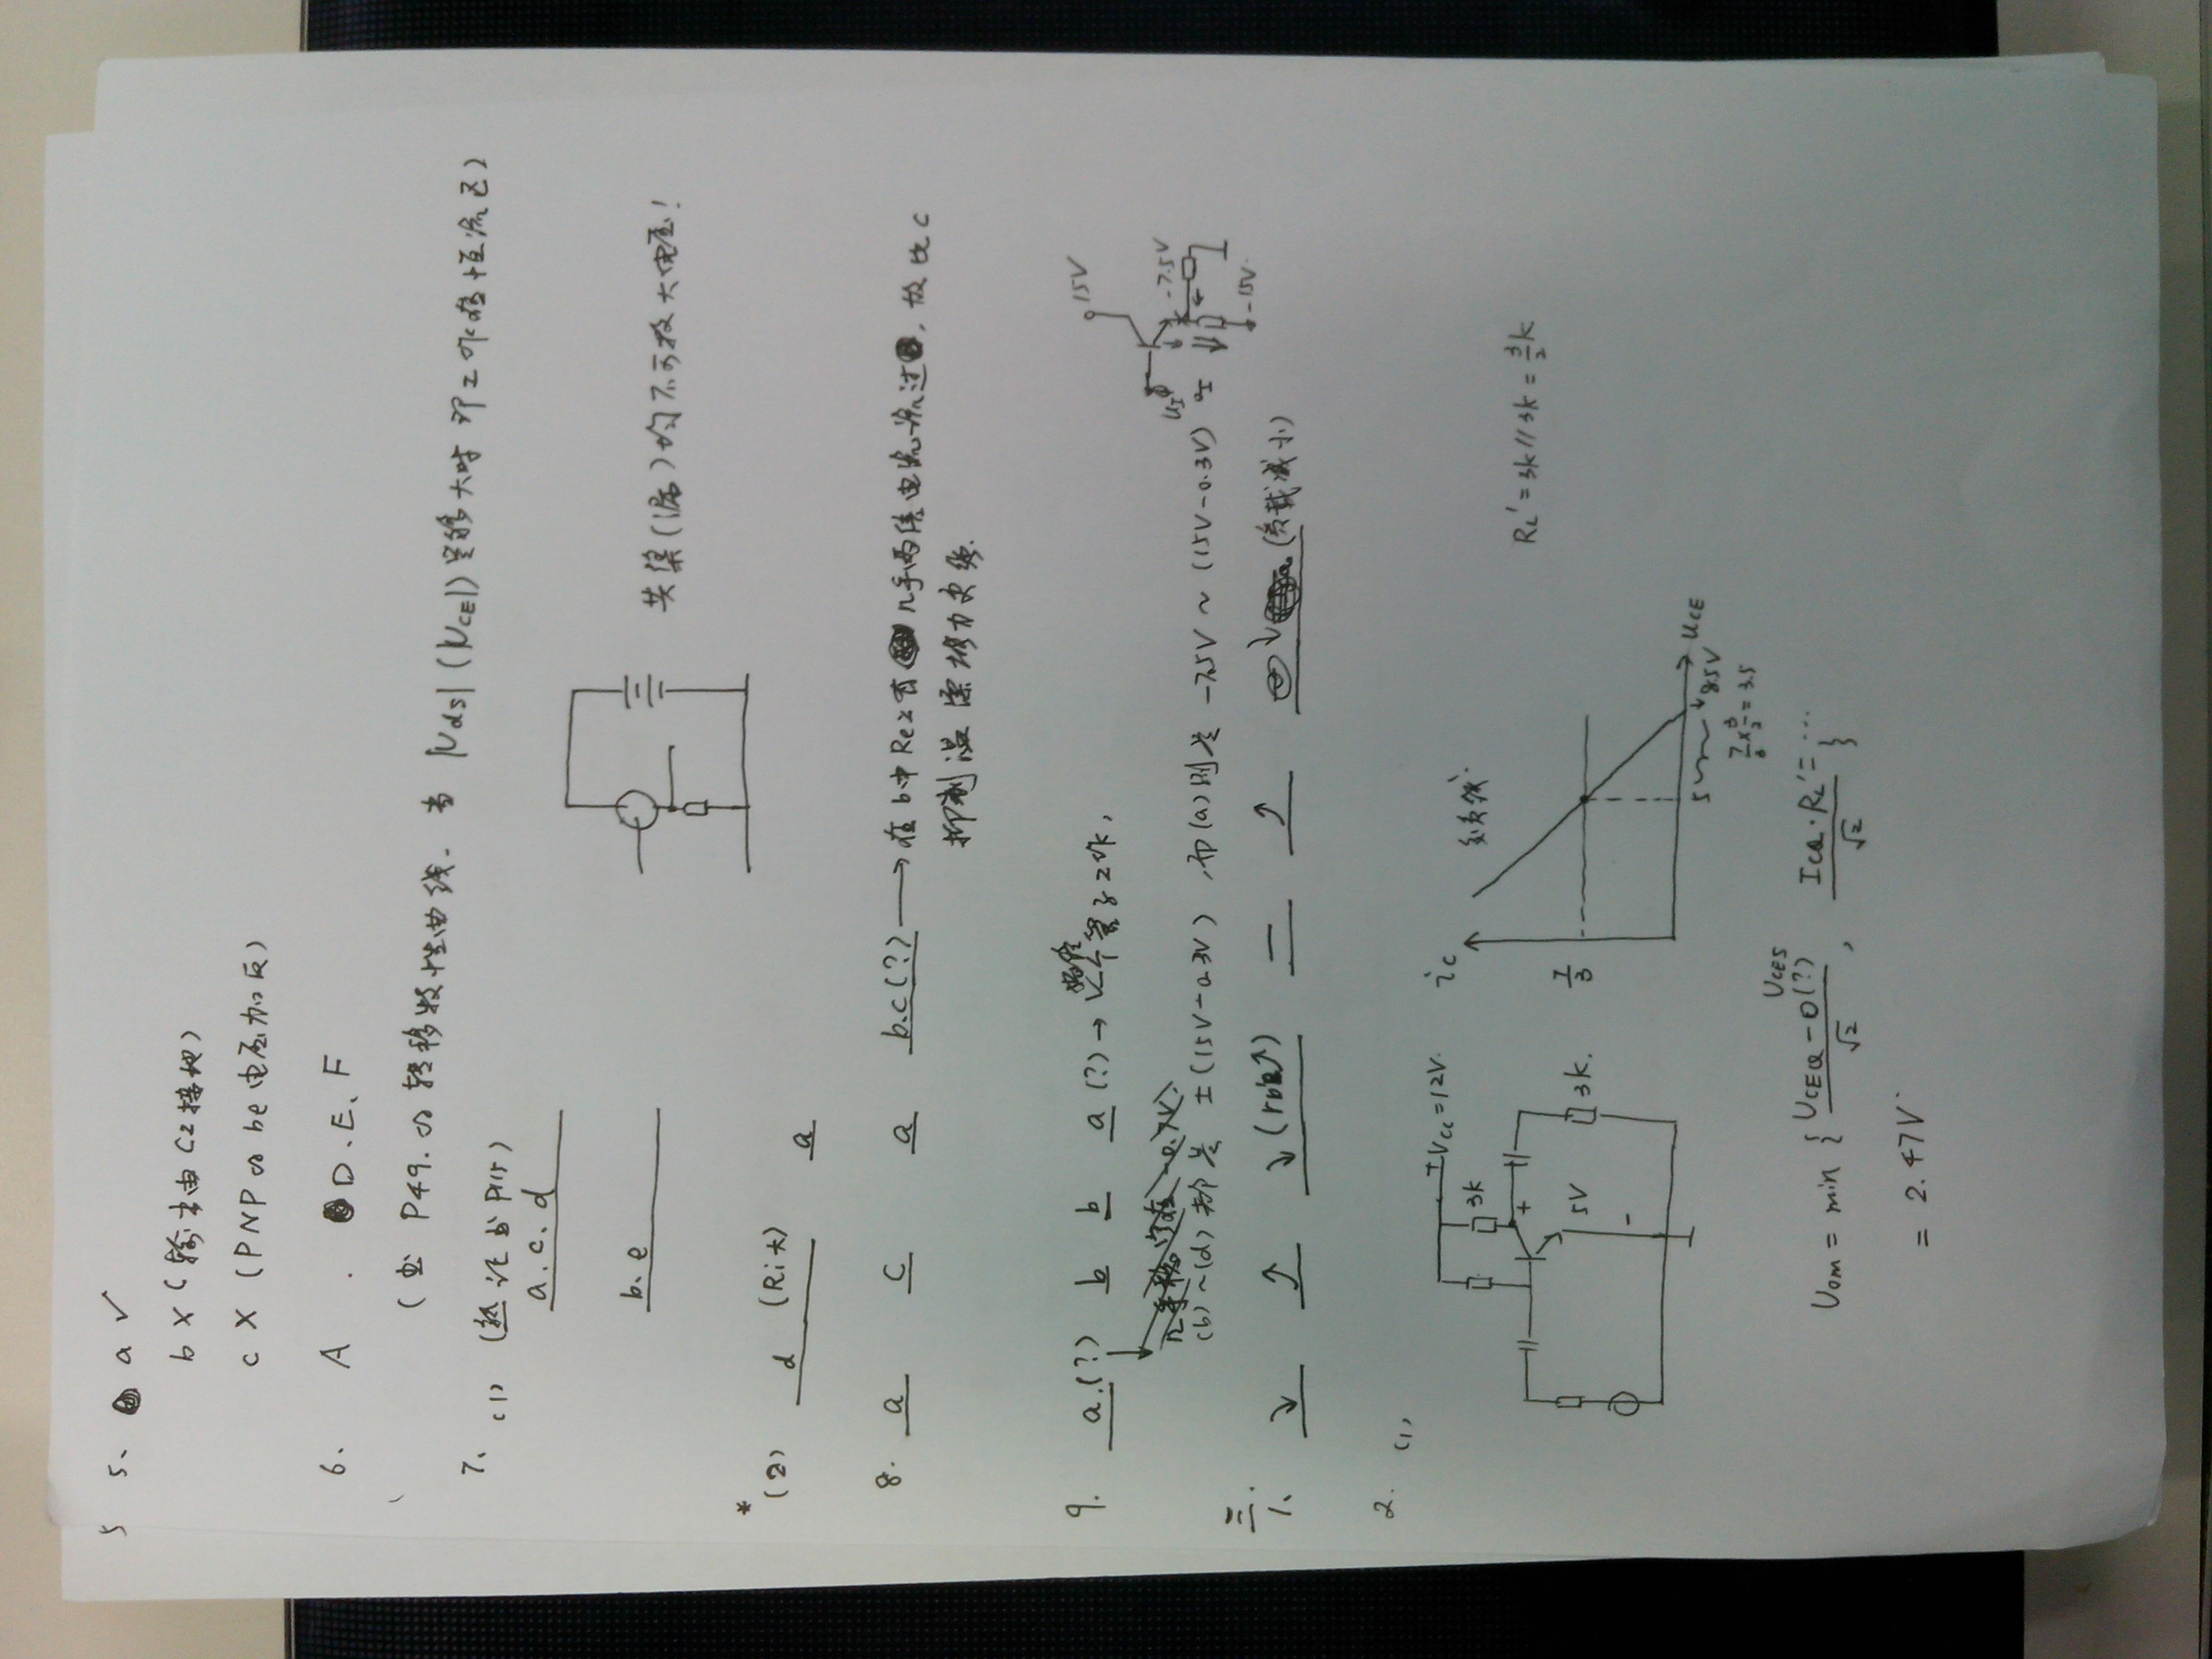 5 5、 a ✓
b × (输出由C2接地)
c × (PNP的be电压加反)
6. A . D.E、F
(书 P49.的转移特性曲线. 当 |Uds| (|UCE|) 足够大时 即工作在恒流区)
7、
(1) (熟记书P115)
a.c.d
b、e
共集(漏)均不可放大电压!
*
(2) d (Ri大) a
8. a c a b.c(?) → 在b中Re2有 几乎两倍电流流过, 故比c
抑制温漂能力更强.
9. a.(?) b b a(?) → 个管子工作,
(b)~(d) 都是 ±(15V-0.3V) ,而(a)则是 -7.5V ~ (15V-0.3V)
15V
-7.5V
uI
-15V
三.
1、 ↘ ↗ ↘(rb'e↑) = ↗ ↓ (负载减小)
2. (1)
+Vcc=12V.
3k
+
5V
-
3k.
ic
交负线
7/3
5
8.5V
uCE
7/3×3/2=3.5
RL'=3k//3k=3/2k
UCES
Uom = min { UCEQ-0(?)/√2 , ICQ·RL'=.../√2 }
= 2.47V